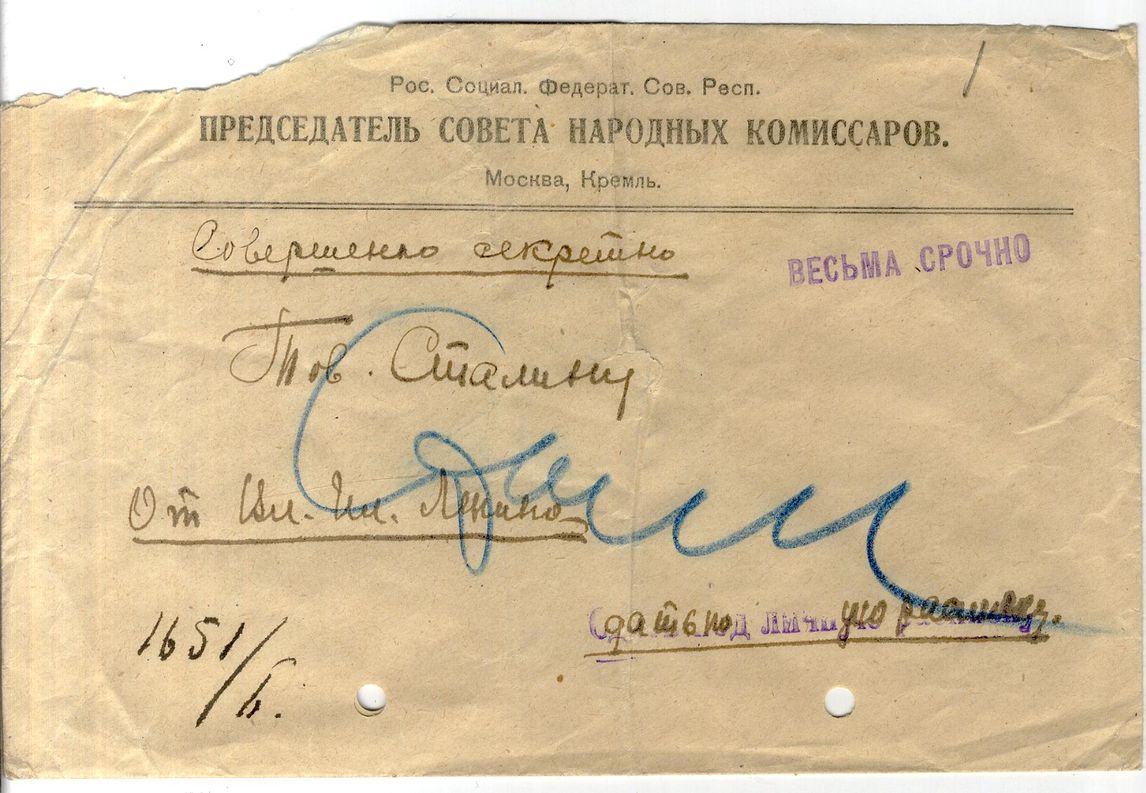 Рос. Социал. Федерат. Сов. Респ.
ПРЕДСЕДАТЕЛЬ СОВЕТА НАРОДНЫХ КОМИССАРОВ.
Москва, Кремль.
Совершенно секретно
ВЕСЬМА СРОЧНО
Тов. Сталину
От Вл. Ил. Ленина
Сдать под личную расписку.
1651/Б.